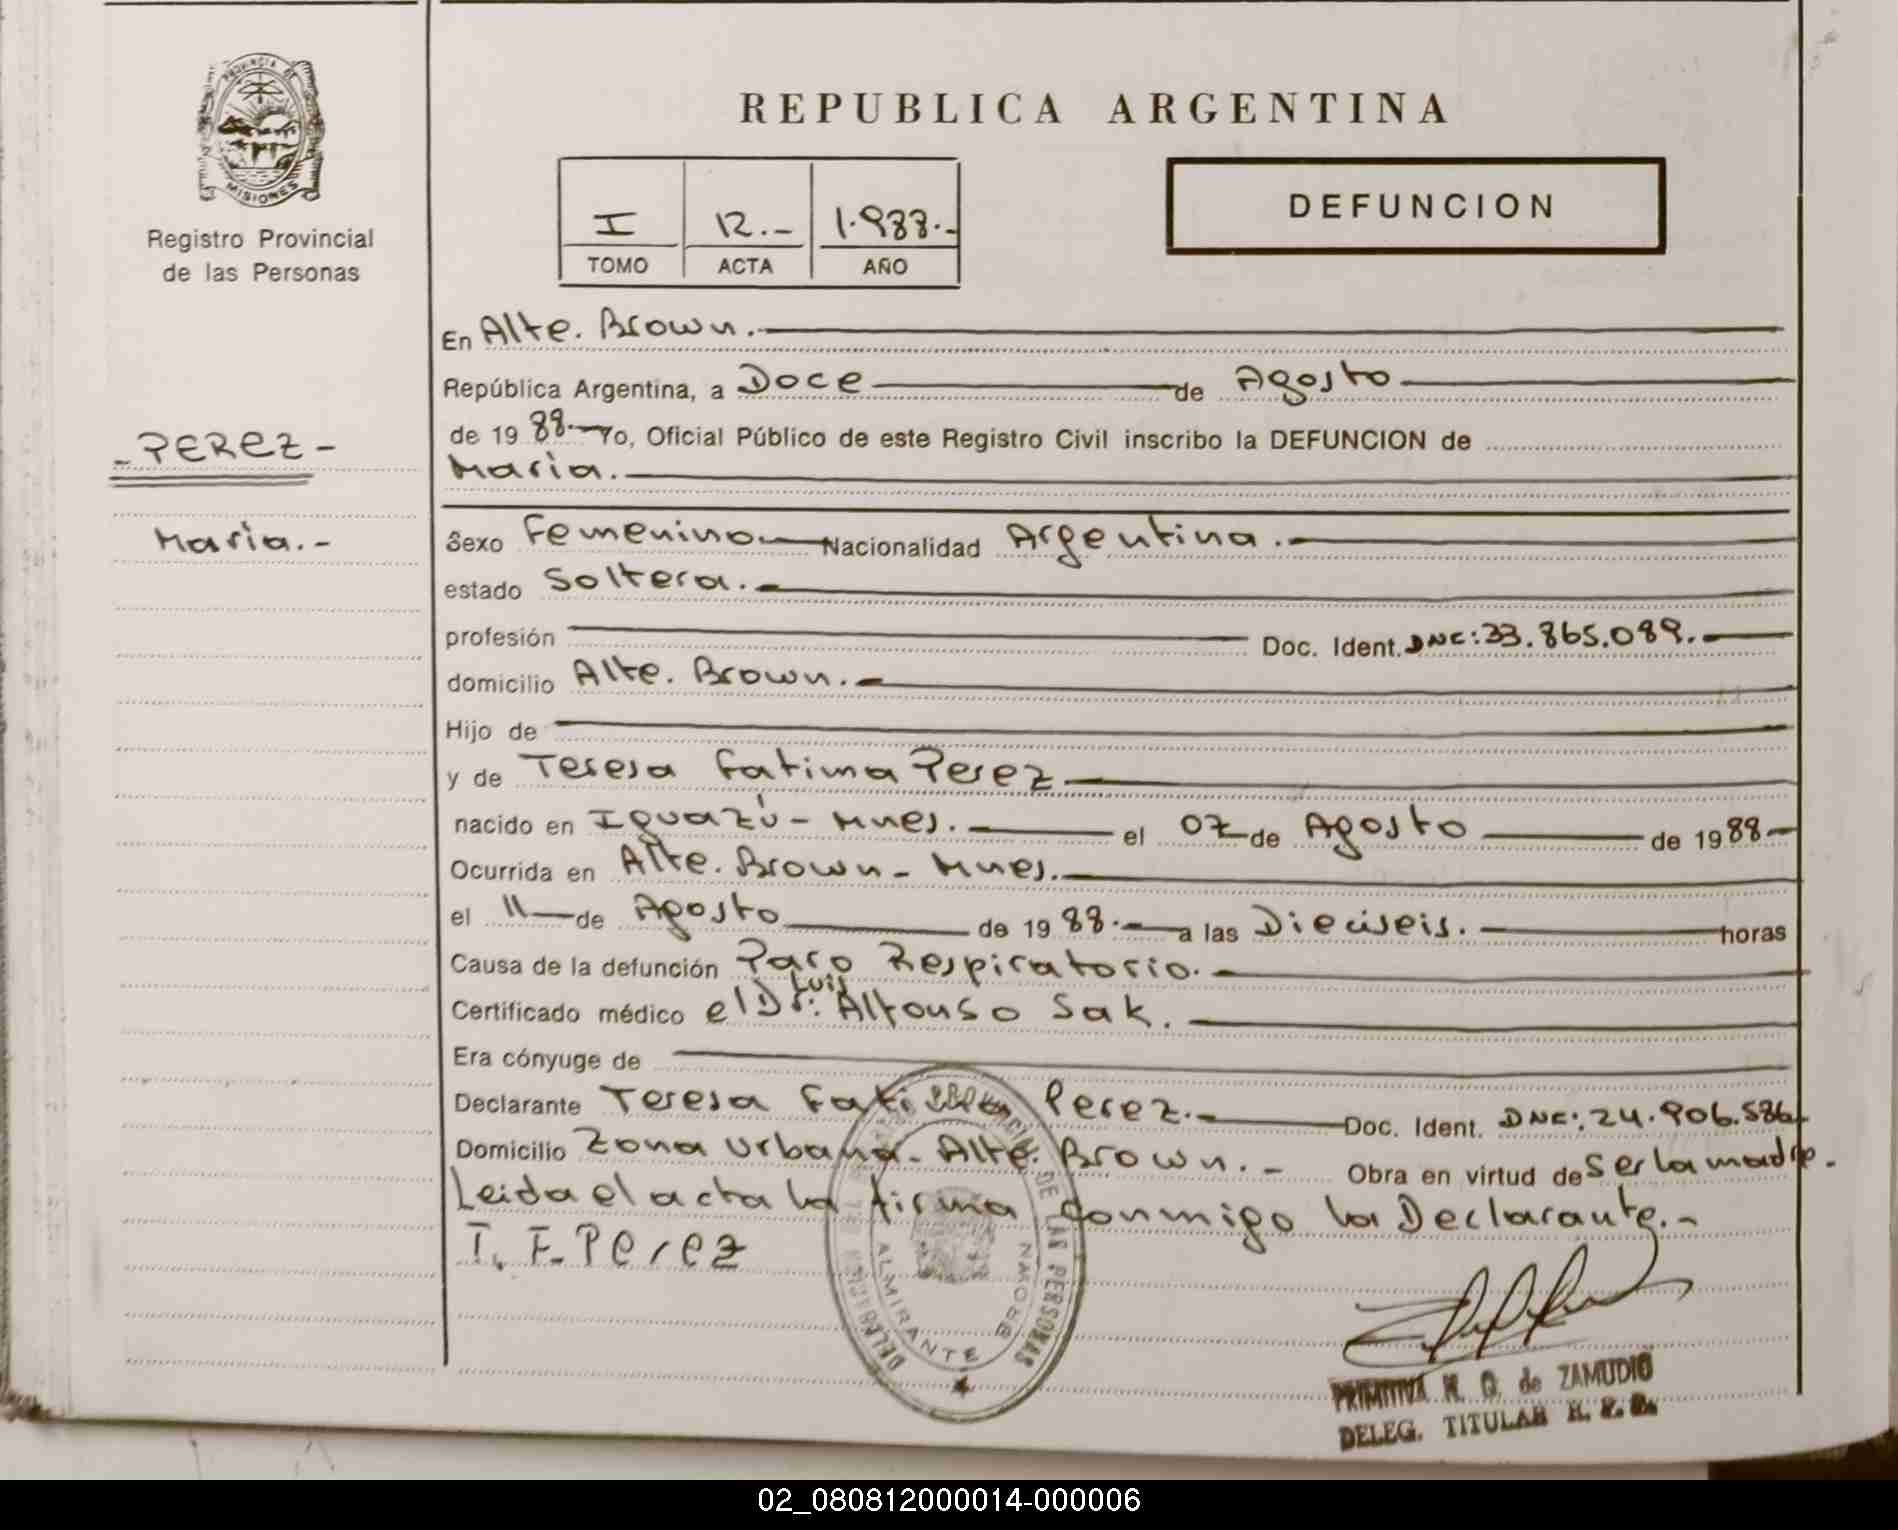 PROVINCIA DE
MISIONES
Registro Provincial
de las Personas
REPUBLICA ARGENTINA
DEFUNCION
I 12.- 1.988.-
TOMO ACTA AÑO
En Alte. Brown.
República Argentina, a Doce de Agosto
de 19 88.- Yo, Oficial Público de este Registro Civil inscribo la DEFUNCION de
- PEREZ -
Maria.
Maria.-
Sexo Femenino Nacionalidad Argentina.
estado Soltera.
profesión Doc. Ident. DNE: 33.865.089.
domicilio Alte. Brown.
Hijo de
y de Teresa Fatima Perez
nacido en Iguazú - Mnes. el 07 de Agosto de 19 88
Ocurrida en Alte. Brown - Mnes.
el 11 de Agosto de 19 88. a las Dieciseis. horas
Causa de la defunción Paro Respiratorio.
Certificado médico el Dr. Luis Alfonso Sak.
Era cónyuge de
Declarante Teresa Fatima Perez. Doc. Ident. DNE: 24.906.586
Domicilio Zona Urbana - Alte. Brown. - Obra en virtud de Ser la madre.
Leida el acta la firma conmigo la Declarante.-
T. F. Perez
DE LAS PERSONAS
ALMIRANTE BROWN
PRIMITIVA de ZAMUDIO
DELEG. TITULAR R. P. P.
02_080812000014-000006